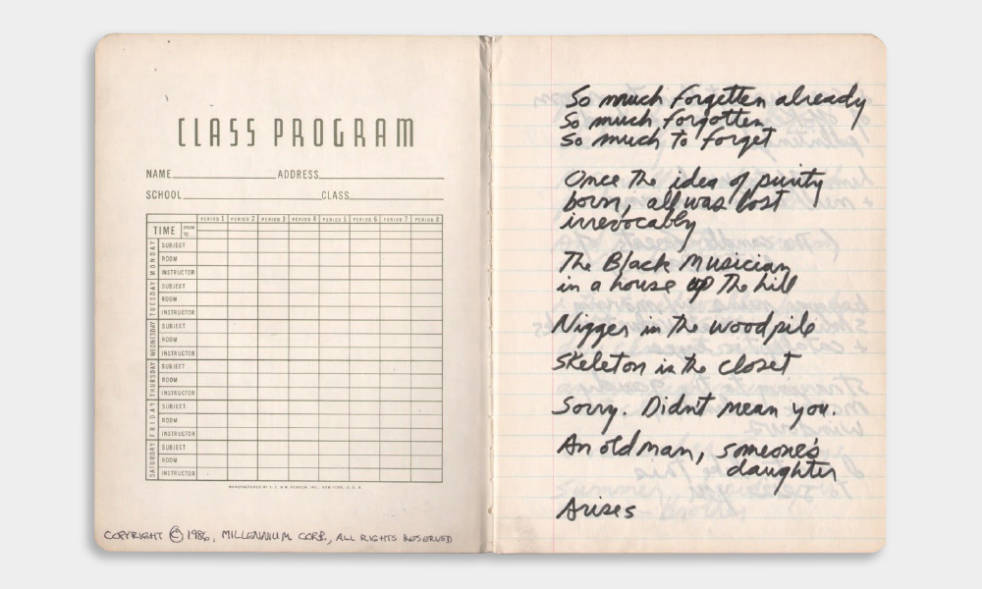 CLASS PROGRAM
NAME ADDRESS
SCHOOL CLASS
PERIOD 1 PERIOD 2 PERIOD 3 PERIOD 4 PERIOD 5 PERIOD 6 PERIOD 7 PERIOD 8
TIME FROM TO
MONDAY
SUBJECT
ROOM
INSTRUCTOR
TUESDAY
SUBJECT
ROOM
INSTRUCTOR
WEDNESDAY
SUBJECT
ROOM
INSTRUCTOR
THURSDAY
SUBJECT
ROOM
INSTRUCTOR
FRIDAY
SUBJECT
ROOM
INSTRUCTOR
SATURDAY
SUBJECT
ROOM
INSTRUCTOR
COPYRIGHT © 1986, MILLENNIUM CORP., ALL RIGHTS RESERVED
So much forgotten already
So much forgotten
So much to forget
Once the idea of purity
born, all was lost
irrevocably
The Black Musician
in a house up the hill
Nigger in the woodpile
Skeleton in the closet
Sorry. Didn't mean you.
An old man, someone's
daughter
Arises